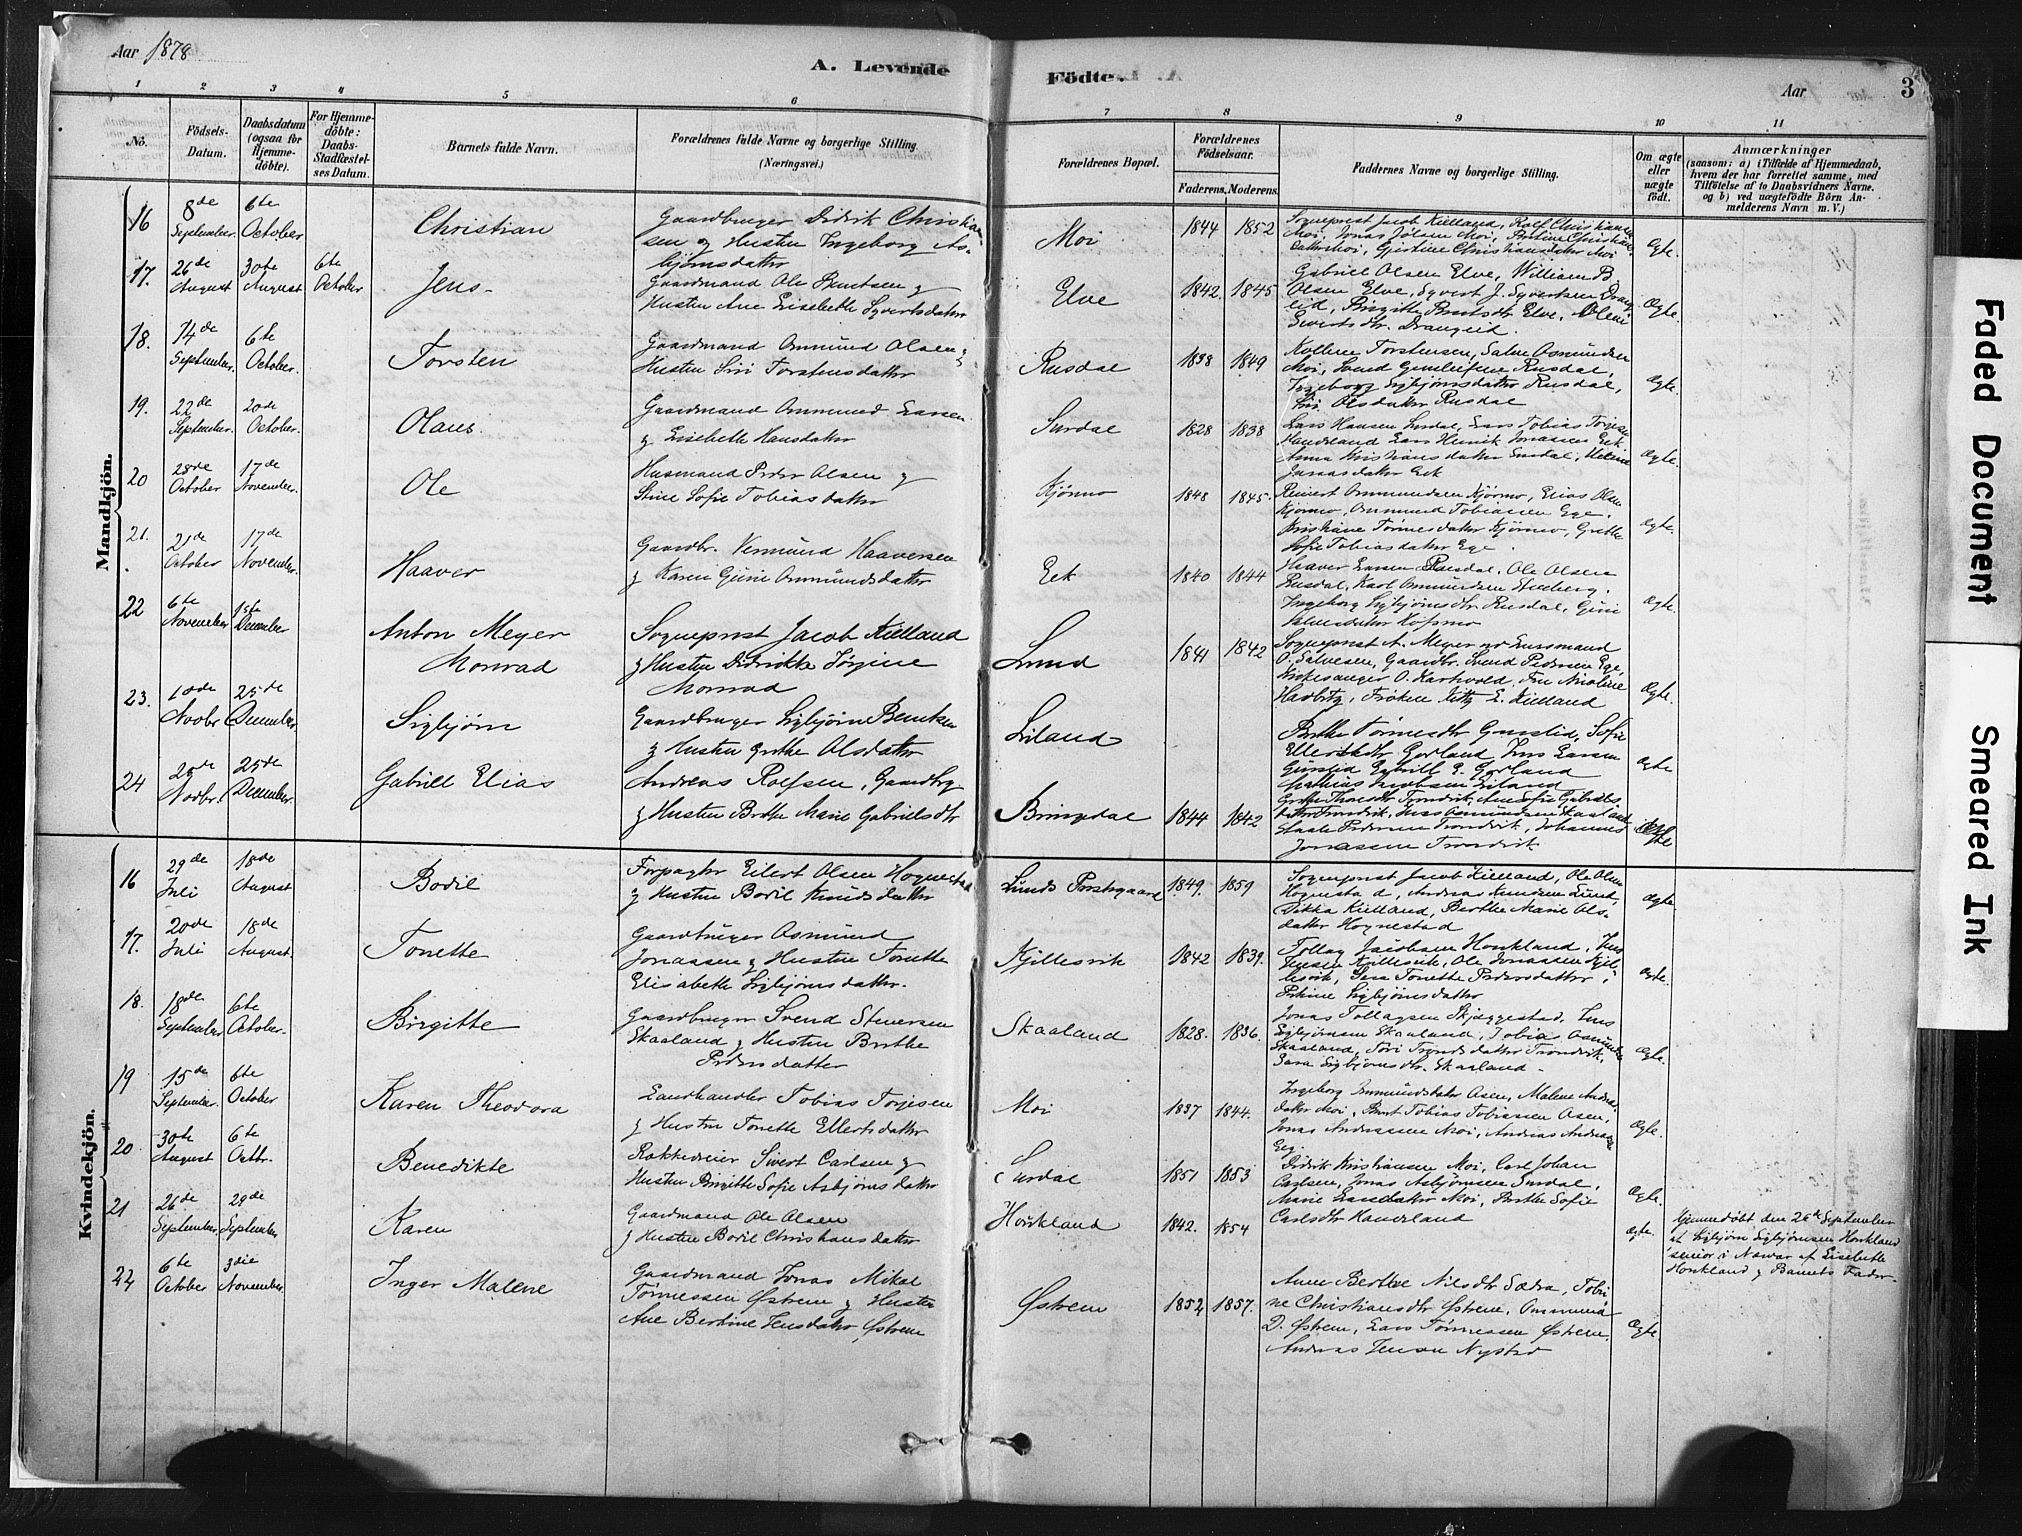 Aar 1878
A. Levende Födte.
Aar
3
1 2 3 4 5 6 7 8 9 10 11
No.
Födsels-Datum.
Daabsdatum (ogsaa for Hjemme-döbte).
For Hjemme-döbte: Daabs-Stadfæstel-ses Datum.
Barnets fulde Navn.
Forældrenes fulde Navne og borgerlige Stilling. (Næringsvei.)
Forældrenes Bopæl.
Forældrenes Födselsaar.
Faderens. Moderens.
Faddernes Navne og borgerlige Stilling.
Om ægte eller uægte födt.
Anmærkninger
(saasom: a) i Tilfælde af Hjemmedaab,
hvem der har forrettet samme, med
Tilföielse af to Daabsvidners Navne.
og b) ved uægtefödte Börn An-
melderens Navn m. V.)
Mandkjön.
16 8de September 6te October Christian
Gaardbruger Didrik Christian-
sen og Hustru Ingeborg As-
bjørnsdatter
Moi 1844 1852
Sogneprest Jacob Kielland, Rolf Christiansen
Moi, Jonas Jølsen Moi, Bertine Christians
datter Moi, Gjertine Christiansdatter Moi
Ægte.
17. 26de August 30te August 6te October Jens
Gaardmand Ole Berntsen og
Hustru Ane Elisebeth Syvertsdatter
Elve 1842. 1845
Gabriel Olsen Elve, William B.
Olsen Elve, Syvert J. Syvertsen Drang
eid, Birgitte Berntsdtr Elve, Oline
Sivertsdtr. Drangeid.
Ægte.
18. 14de September. 6te October. Torsten
Gaardmand Ommund Olsen og
Hustru Siri Torstensdatter
Rusdal 1838 1849
Kolbein Torstensen, Salve Osmundsen
Moi, Svend Gunleifsen Rusdal,
Ingeborg Sigbjørnsdatter Rusdal,
Siri Olsdatter Rusdal
Ægte.
19. 22de September. 20de October. Olaus.
Gaardmand Ommund Larsen
og Elisebeth Hansdatter
Surdal 1828 1838
Lars Hansen Surdal, Lars Tobias Torjesen
Haukland Lars Henrik Jonassen Eek
Anna Kristiansdatter Surdal, Helene
Jonasdatter Eek
Ægte.
20 28de October 17de November. Ole
Husmand Peder Olsen og
Stine Sofie Tobiasdatter
Kjørmo 1848 1845.
Reinert Ommundsen Kjørmo, Elias Olsen
Kjørmo, Ommund Tobiassen Ege,
Kristiane Tønnesdatter Kjørmo, Grethe
Sofie Tobiasdatter Ege.
Ægte.
21. 21de October 17de November. Haaver
Gaardbr. Vermund Haaversen
og Karen Gurie Ommundsdatter
Eek 1840 1844
Haaver Larsen Rusdal, Ole Olsen
Rusdal, Karl Ommundsen
Ingeborg Sigbjørnsdtr Rusdal, Guri
Ægte.
22 6te November 1ste December Anton Meyer
Monrad
Sogneprest Jacob Kielland
og Hustru Didrikke Jørgine
Monrad
Lund 1841 1842
Sogneprest A. Meyer og Lensmand
O. Salvesen, Gaardbr. Svend Pedersen Ege,
Kirkesanger O. Kartvold, Fru Nicoline
Hærbitz, Frøken Kitty E. Kielland
Ægte.
23. 10de Novbr 25de December Sigbjørn
Gaardbruger Sigbjørn Berntsen
og Hustru Grethe Olsdatter
Leiland
Berthe Tønnesdtr Gursliid, Sofie
Ellertsdtr Gjerland, Jens Larsen
Gursliid, Gabriel E. Gjerland
Mathias Jacobsen Leiland
Ægte
24 20de Novbr. 25de December. Gabriel Elias
Andreas Rolfsen, Gaardbrg
og Hustru Berthe Marie Gabrielsdtr
Bringedal 1844 1842
Jonassen Tronsvik
Ægte
Kvindekjön.
16 29de Juli 18de August Bodil
Forpagter Eilert Olsen Hognestad
og Hustru Bodil Knudsdatter
Lunds Prestegaard 1849. 1859
Sogneprest Jacob Kielland, Ole Olsen
Hognestad, Andreas Knudsen Lund,
Dikka Kielland, Berthe Marie Ols-
datter Hognestad
Ægte.
17. 20de Juli 18de August. Tonette
Gaardbruger Osmund
Jonassen og Hustru Tonette
Elisabeth Sigbjørnsdatter.
Kjellesvik 1842 1839.
Tollag Jacobsen Houkland, Jens
Jensen Kjellesvik, Ole Jonassen Kjel-
lesvik, Sara Tonette Pedersdatter,
Petrine Sigbjørnsdatter
Ægte.
18. 18de September. 6te October. Birgitte
Gaardbruger Svend Stenersen
Skaaland og Hustru Berthe
Pedersdatter
Skaaland 1828. 1836.
Jonas Tollagsen Skjeggestad, Jens
Sigbjørnsen Skaaland, Tobias Osmundsen
Skaaland, Tori Trondsdatter Tronsvik,
Sara Sigbjørnsdtr. Skaaland.
Ægte.
19 15de September. 6te October Karen Theodora
Landhandler Tobias Torjesen
og Hustru Tonette Ellertsdatter
Moi 1837 1844.
Ingeborg Ommundsdatter Osen, Malene Andreas-
datter Moi, Bernt Tobias Tobiassen Osen,
Jonas Andreassen Moi, Andreas Andreassen
Eeg
Ægte.
20 30te August 6te Octbr. Benedikte
Rakkedreier Sivert Carlsen og
Hustru Birgitte Sofie Asbjørnsdatter
Surdal 1851 1853
Didrik Kristiansen Moi, Carl Johan
Carlsen, Jonas Asbjørnsen Surdal,
Marie Larsdatter Moi, Berthe Sofie
Carlsdtr Haukland
Ægte.
21 26de September. 29de September Karen
Gaardmand Ole Olsen
og Hustru Bodil Christiansdatter
Houkland 1842. 1854
Ægte.
Hjemmedøbt den 26de September
af Sigbjørn Sigbjørnsen Houkland
senior i Nærvær af Elisebeth
Houkland og Barnets Fader.
22 6te October 3die November. Inger Malene
Gaardmand Jonas Mikal
Tønnessen Østrem og Hustru
Ane Bertine Jensdatter Østrem
Østrem 1852 1857.
Anne Berthe Nilsdtr Sædra, Tobi
ne Christiansdtr Østrem, Ommund
D. Østrem, Lars Tønnessen Østrem,
Andreas Jensen Nystød
Ægte.
Faded Document
Smeared Ink